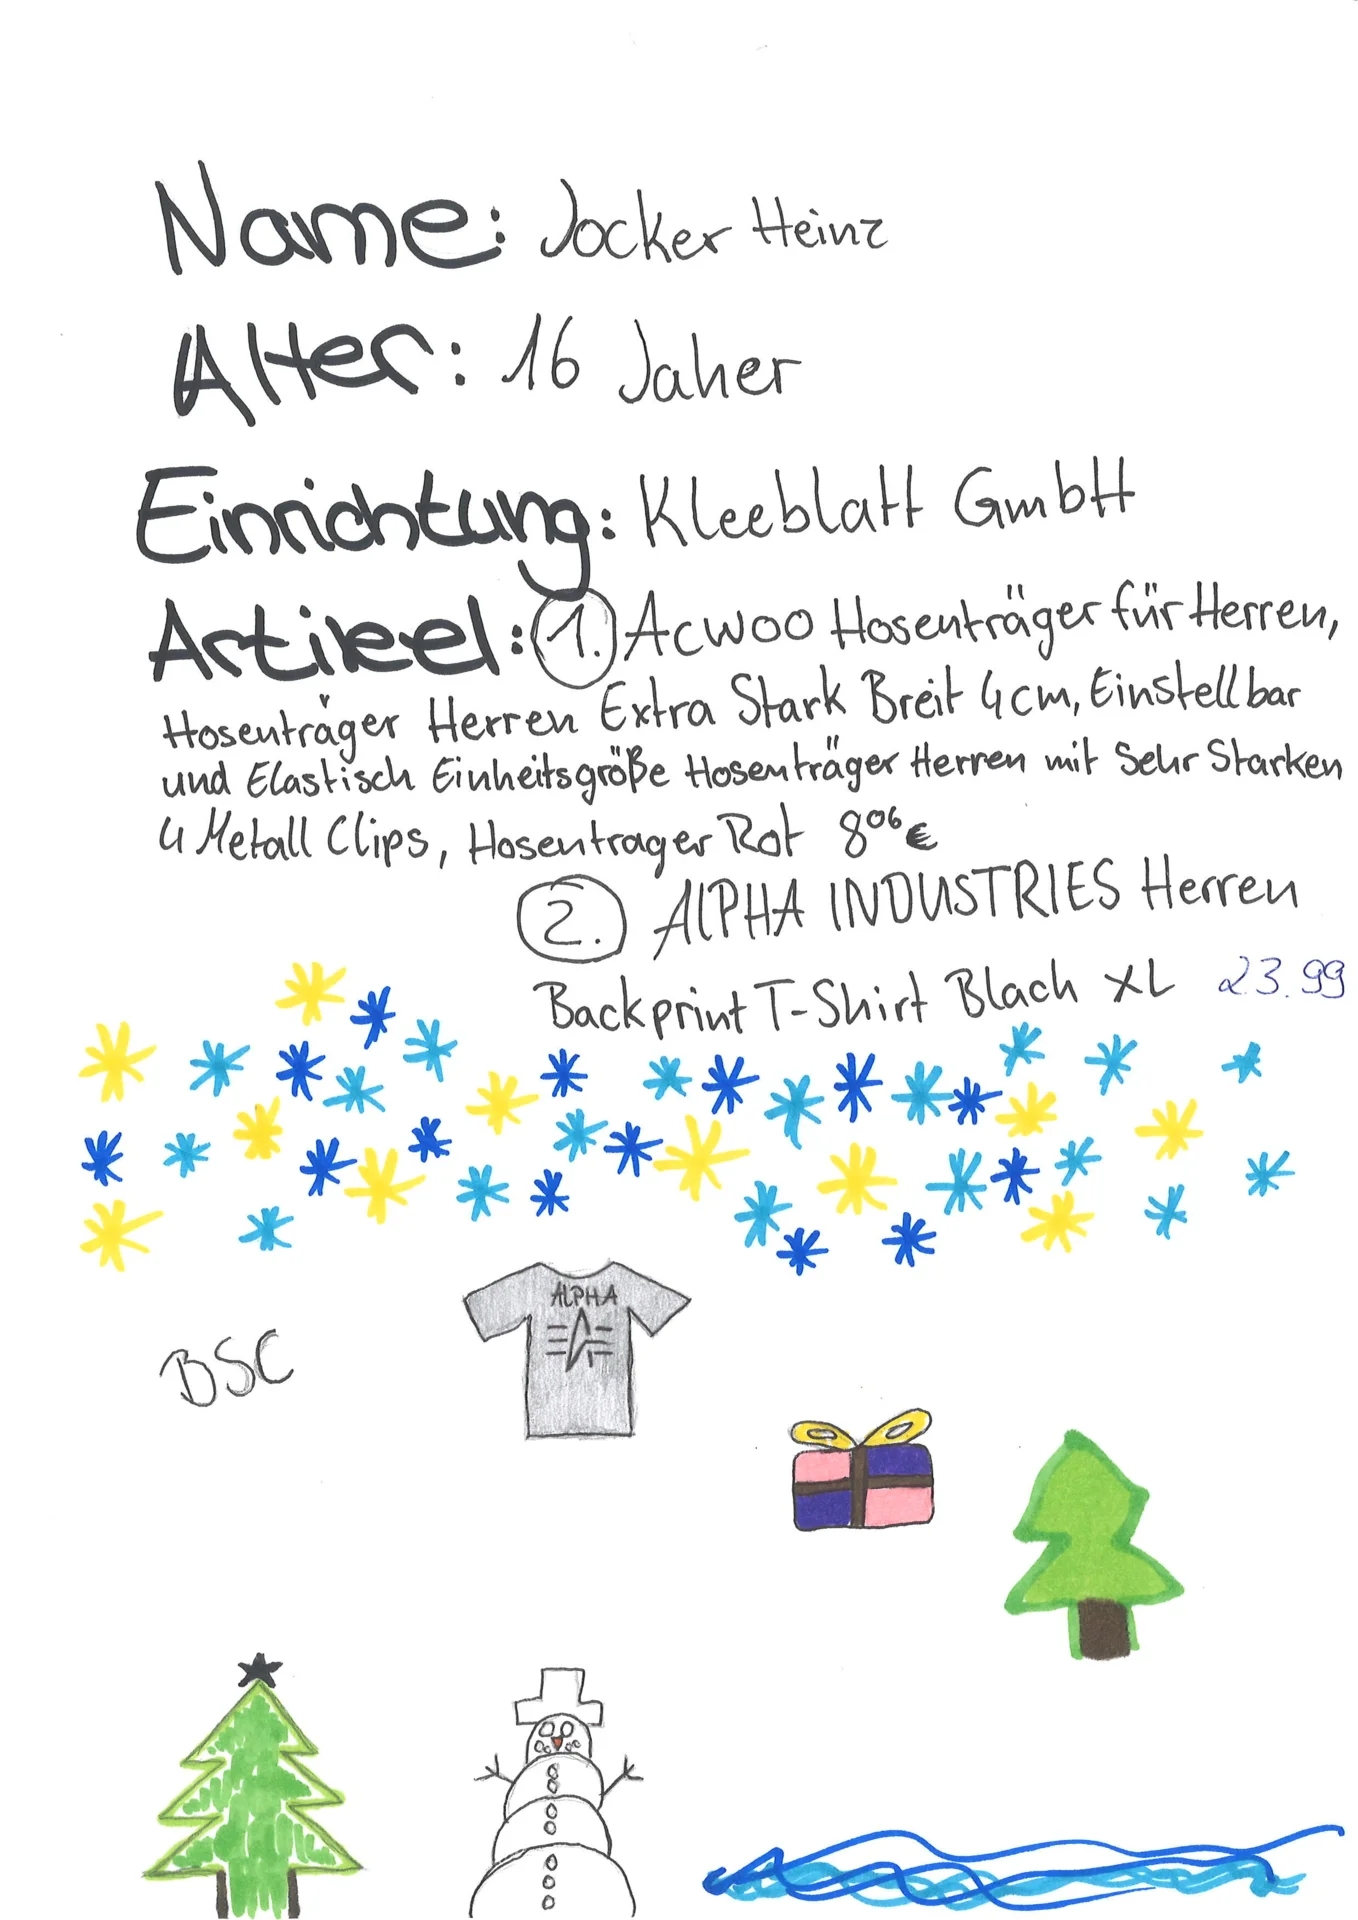 Name: Jocker Heinz
Alter: 16 Jaher
Einrichtung: Kleeblatt GmbH
Artikel: 1. Acwoo Hosenträger für Herren,
Hosenträger Herren Extra Stark Breit 4cm, Einstellbar
und Elastisch Einheitsgröße Hosenträger Herren mit Sehr Starken
4 Metall Clips, Hosentrager Rot 806€
2. AlPHA INDUSTRIES Herren
Backprint T-Shirt Blach XL 23.99
ALPHA
BSC